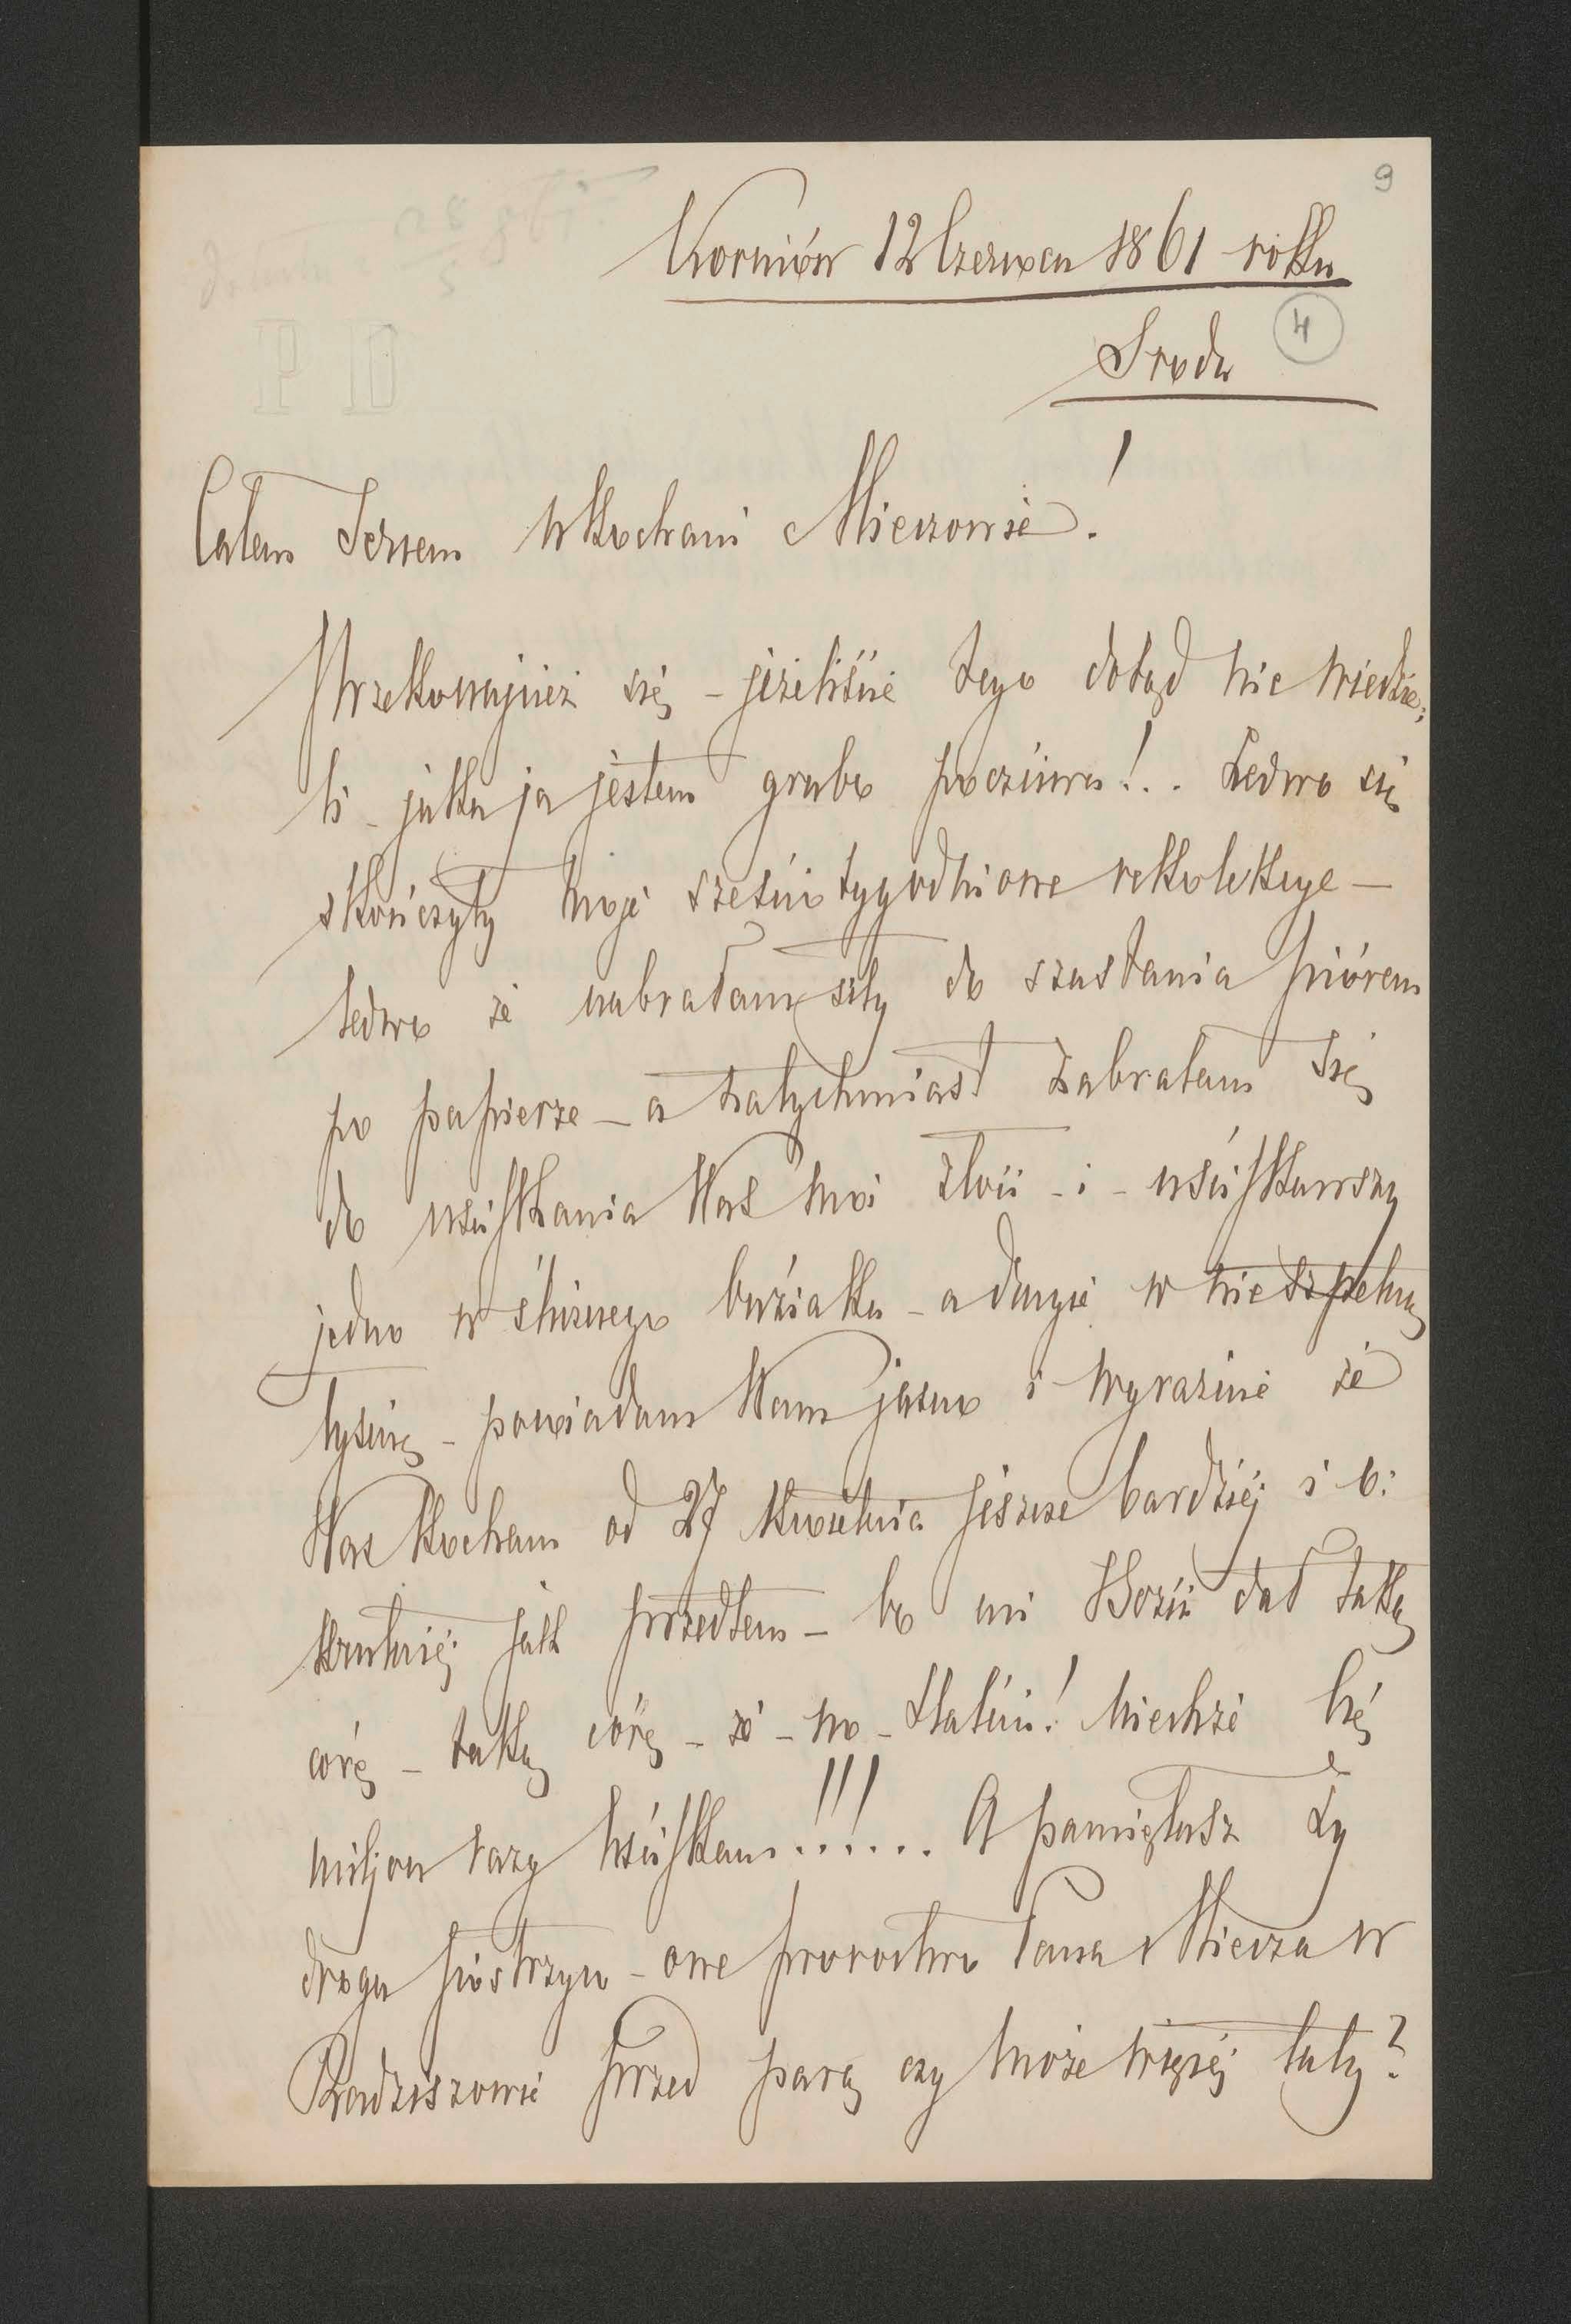 9
Korniów 12 Czerwca 1861 roku
Sroda
4
PD
Całem Sercem ukochani Mieczowie!
Przekonajcież się - jeżeliście tego dotąd nie wiedzie,
li - jaka ja jestem grubo poczciwa!.. Ledwo się
skończyły moje sześćio tygodniowe rekolekcye -
ledwo że nabrałam siły do szastania piórem
po papierze - a natychmiast zabrałam się
do uściskania Was moi złoci - i - uściskawszy
jedno w ślicznego buziaka - a drugie w nieszpetną
łysinę - powiadam Wam jasno i wyraźnie że
Was kocham od 27 Kwietnia jeszcze bardziej i o:
krutniej jak przedtem - bo mi Bozia dał taką
córę - taką córę - że - no - Statici! Niechże Cię
miljon razy uściskam!!!... A pamiętasz Ty
droga siostrzyco - owe proroctwo Pana Miecza w
Radziszowie przed parą czy może więcéj laty?